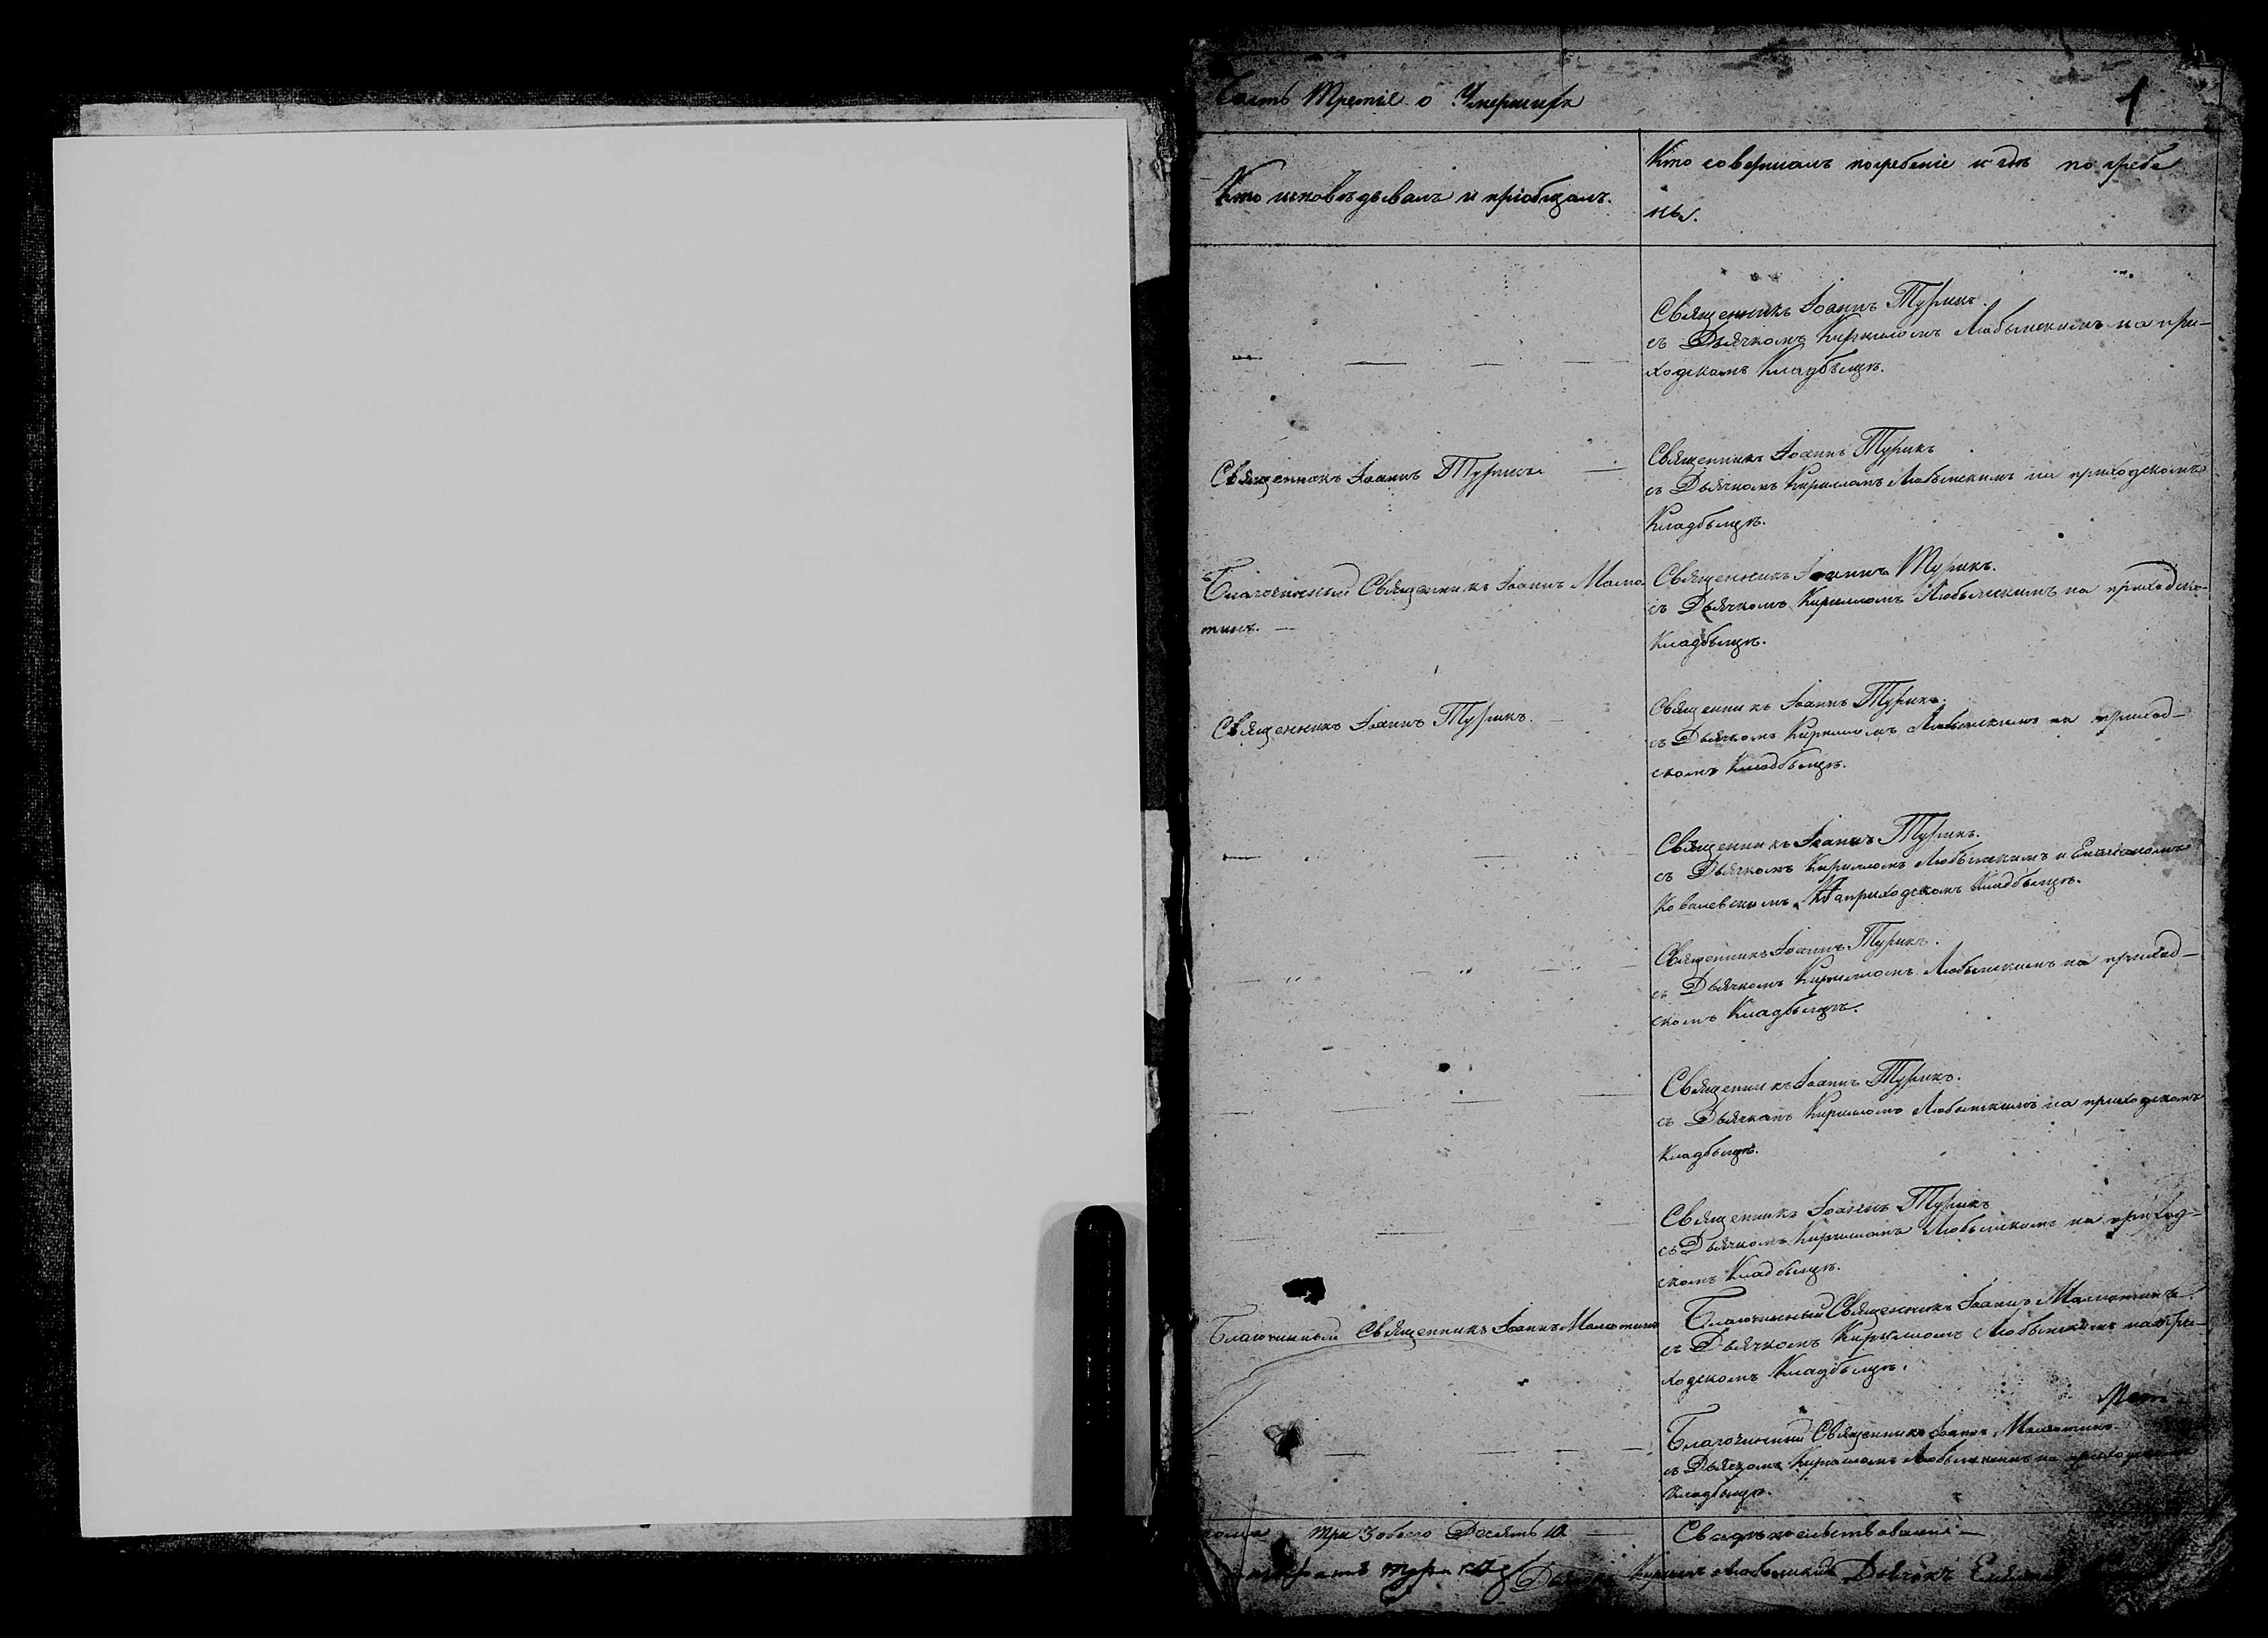 Часть Третіе о Умершихъ
1
Кто исповѣдывалъ и пріобщалъ.
Кто совершалъ погребеніе и гдѣ погребе
ны.
Священникъ Іоаннъ Турикъ.
съ Дьячкомъ Кирилломъ Любынскимъ на при-
ходскомъ Кладбыщѣ.
Священникъ Іоаннъ Турикъ
Священникъ Іоаннъ Турикъ
съ Дьячкомъ Кириломъ Любынскимъ на приходскомъ
Кладбыщѣ.
Благочинный Священникъ Іоаннъ Мамо
тинъ.
Священникъ Іоаннъ Турикъ.
съ Дьячкомъ Кирилломъ Любынскимъ на приходско-
Кладбыщѣ.
Священникъ Іоаннъ Турикъ.
Священникъ Іоаннъ Турикъ.
съ Дьячкомъ Кирилломъ Любынскимъ на приход-
скомъ Кладбыщѣ.
Священникъ Іоаннъ Турикъ.
съ Дьячкомъ Кирилломъ Любынскимъ и
Ковалевскимъ На приходскомъ Кладбыщѣ.
Священникъ Іоаннъ Турикъ.
съ Дьячкомъ Кирилломъ Любынскимъ на приход-
скомъ Кладбыщѣ.
Священникъ Іоаннъ Турикъ.
съ Дьячкомъ Кирилломъ Любынскимъ на приходскомъ
Кладбыщѣ.
Священникъ Іоаннъ Турикъ
съ Дьячкомъ Кирилломъ Любынскимъ на приход-
скомъ Кладбыщѣ.
Благочинный Священникъ Іоаннъ
Благочинный Священникъ Іоаннъ
съ Дьячкомъ Кирилломъ Любынскимъ на при-
ходскомъ Кладбыщѣ.
Благочинный Священникъ Іоаннъ
съ Дьячкомъ Кирилломъ Любынскимъ на приходскомъ
Кладбыщѣ.
три 3 обоего Десять 10.
Кириллъ Любынскій Дьячокъ